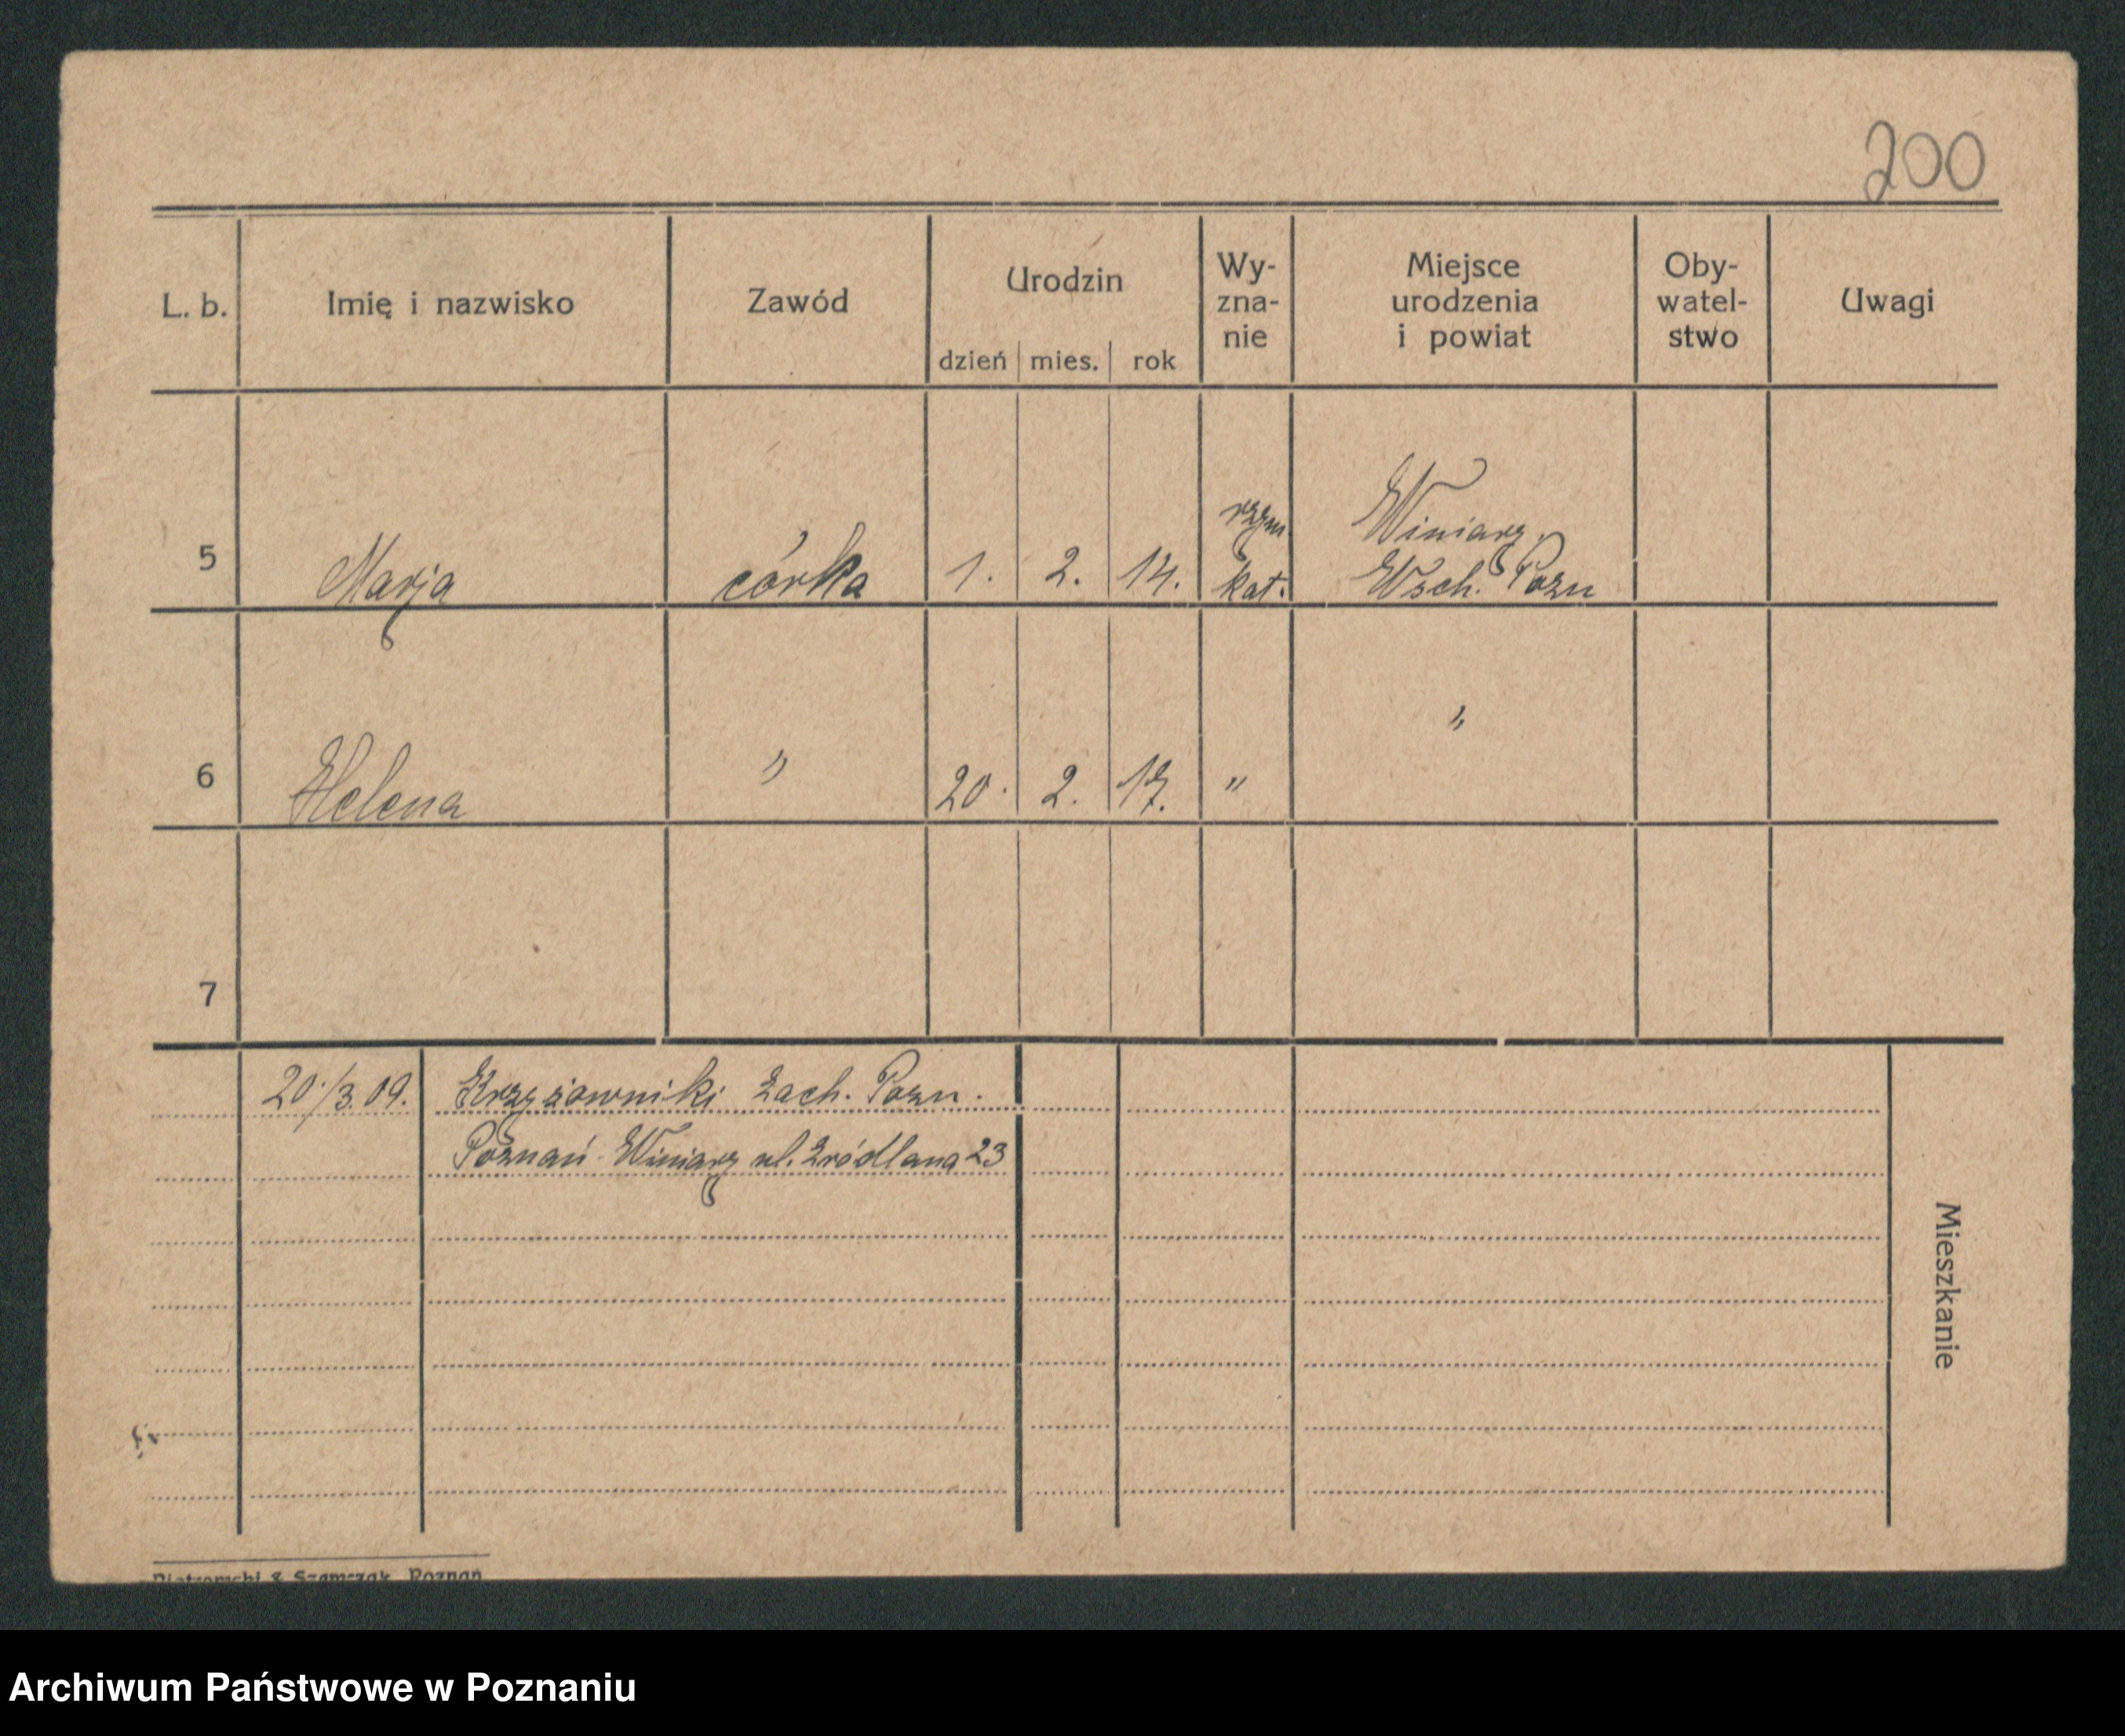 200
L. b. Imię i nazwisko Zawód Urodzin Wy- zna- nie Miejsce urodzenia i powiat Oby- watel- stwo Uwagi
dzień mies. rok
5 Marja córka 1. 2. 14. rzym kat. Winiary Wsch. Pozn
6 Helena " 20. 2. 17. " "
7
20./3.09. Krzyżowniki Zach. Pozn.
Poznań-Winiary ul. Źródlana 23
Mieszkanie
& Szamczak, Poznań
Archiwum Państwowe w Poznaniu